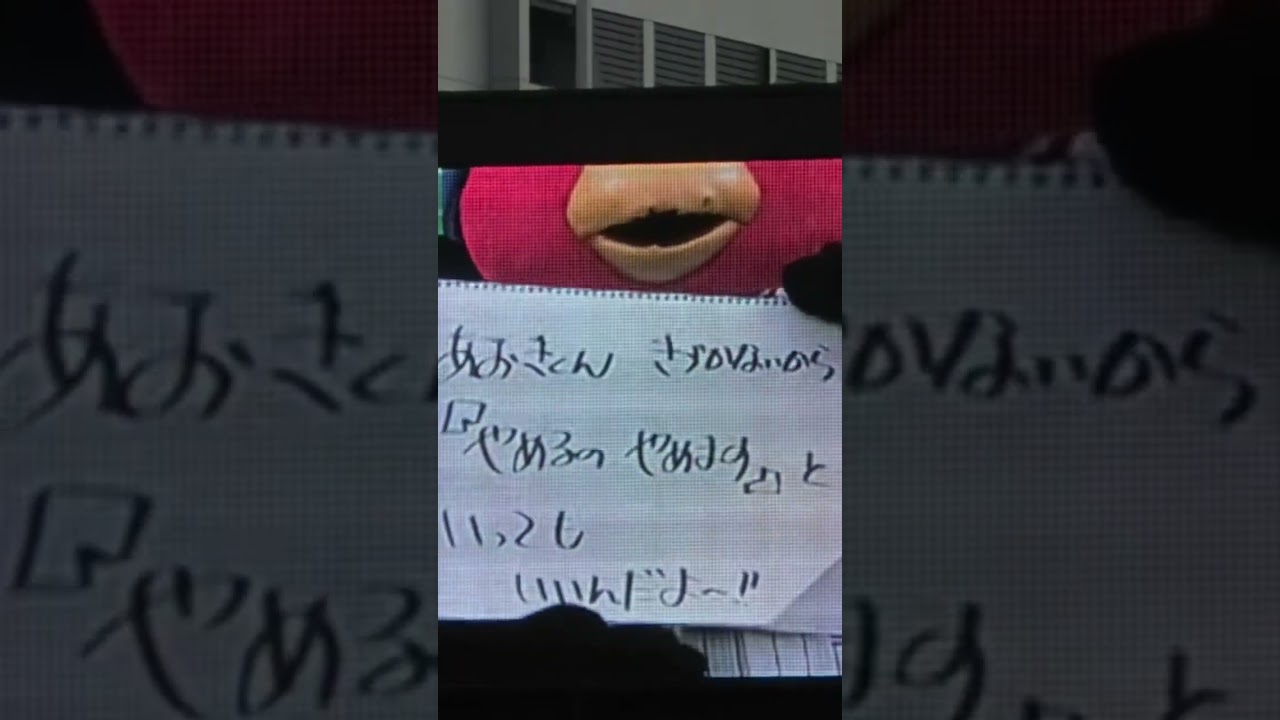 あおさん さかないから
『やめるの やめます』と
いっても
いいんだよ〜!!